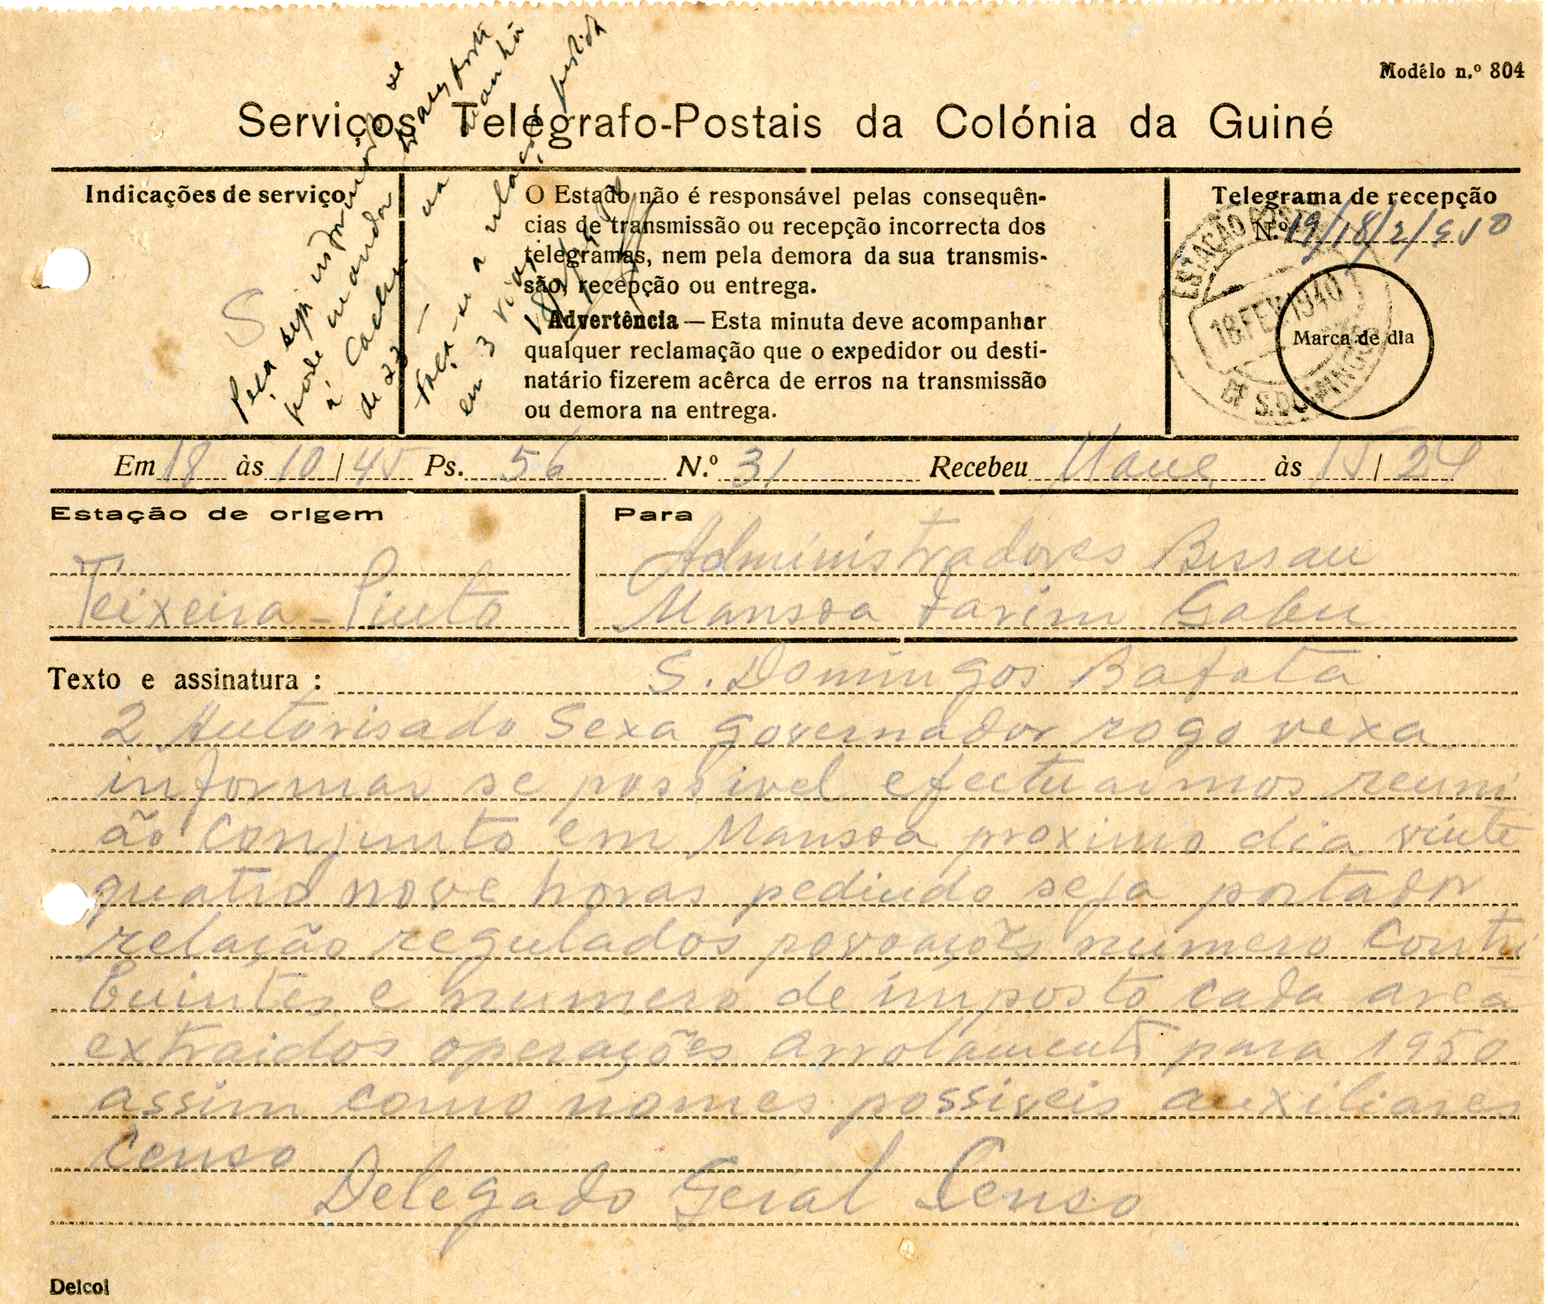 Modêlo n.º 804
Serviços Telégrafo-Postais da Colónia da Guiné
Indicações de serviço
S
O Estado não é responsável pelas consequên-
cias de transmissão ou recepção incorrecta dos
telegramas, nem pela demora da sua transmis-
são, recepção ou entrega.
Advertência — Esta minuta deve acompanhar
qualquer reclamação que o expedidor ou desti-
natário fizerem acêrca de erros na transmissão
ou demora na entrega.
Telegrama de recepção
N.º 19/18/2/950
ESTAÇÃO
18 FEV. 1940
DE S. DOMINGOS
Marca de dia
Peça seja informado se
pode mandar transporte
a Cacheu na manhã
de 23 —
Faça-se a relação pedida
em 3 vias
Em 18 às 10/45 Ps. 56 N.º 31 Recebeu às 15/24
Estação de origem
Teixeira-Pinto
Para
Administradores Bissau
Mansoa Farim Gabu
S. Domingos Bafatá
Texto e assinatura :
2 Autorisado Sexa Governador rogo vexa
informar se possivel efectuarmos reuni
ão conjunto em Mansoa proximo dia vinte
quatro nove horas pedindo seja portador
relação regulados povoações numero contri
buintes e numero de imposto cada area
extraidos operações arrolamento para 1950
assim como nomes possiveis auxiliares
censo
Delegado Geral Censo
Delcol